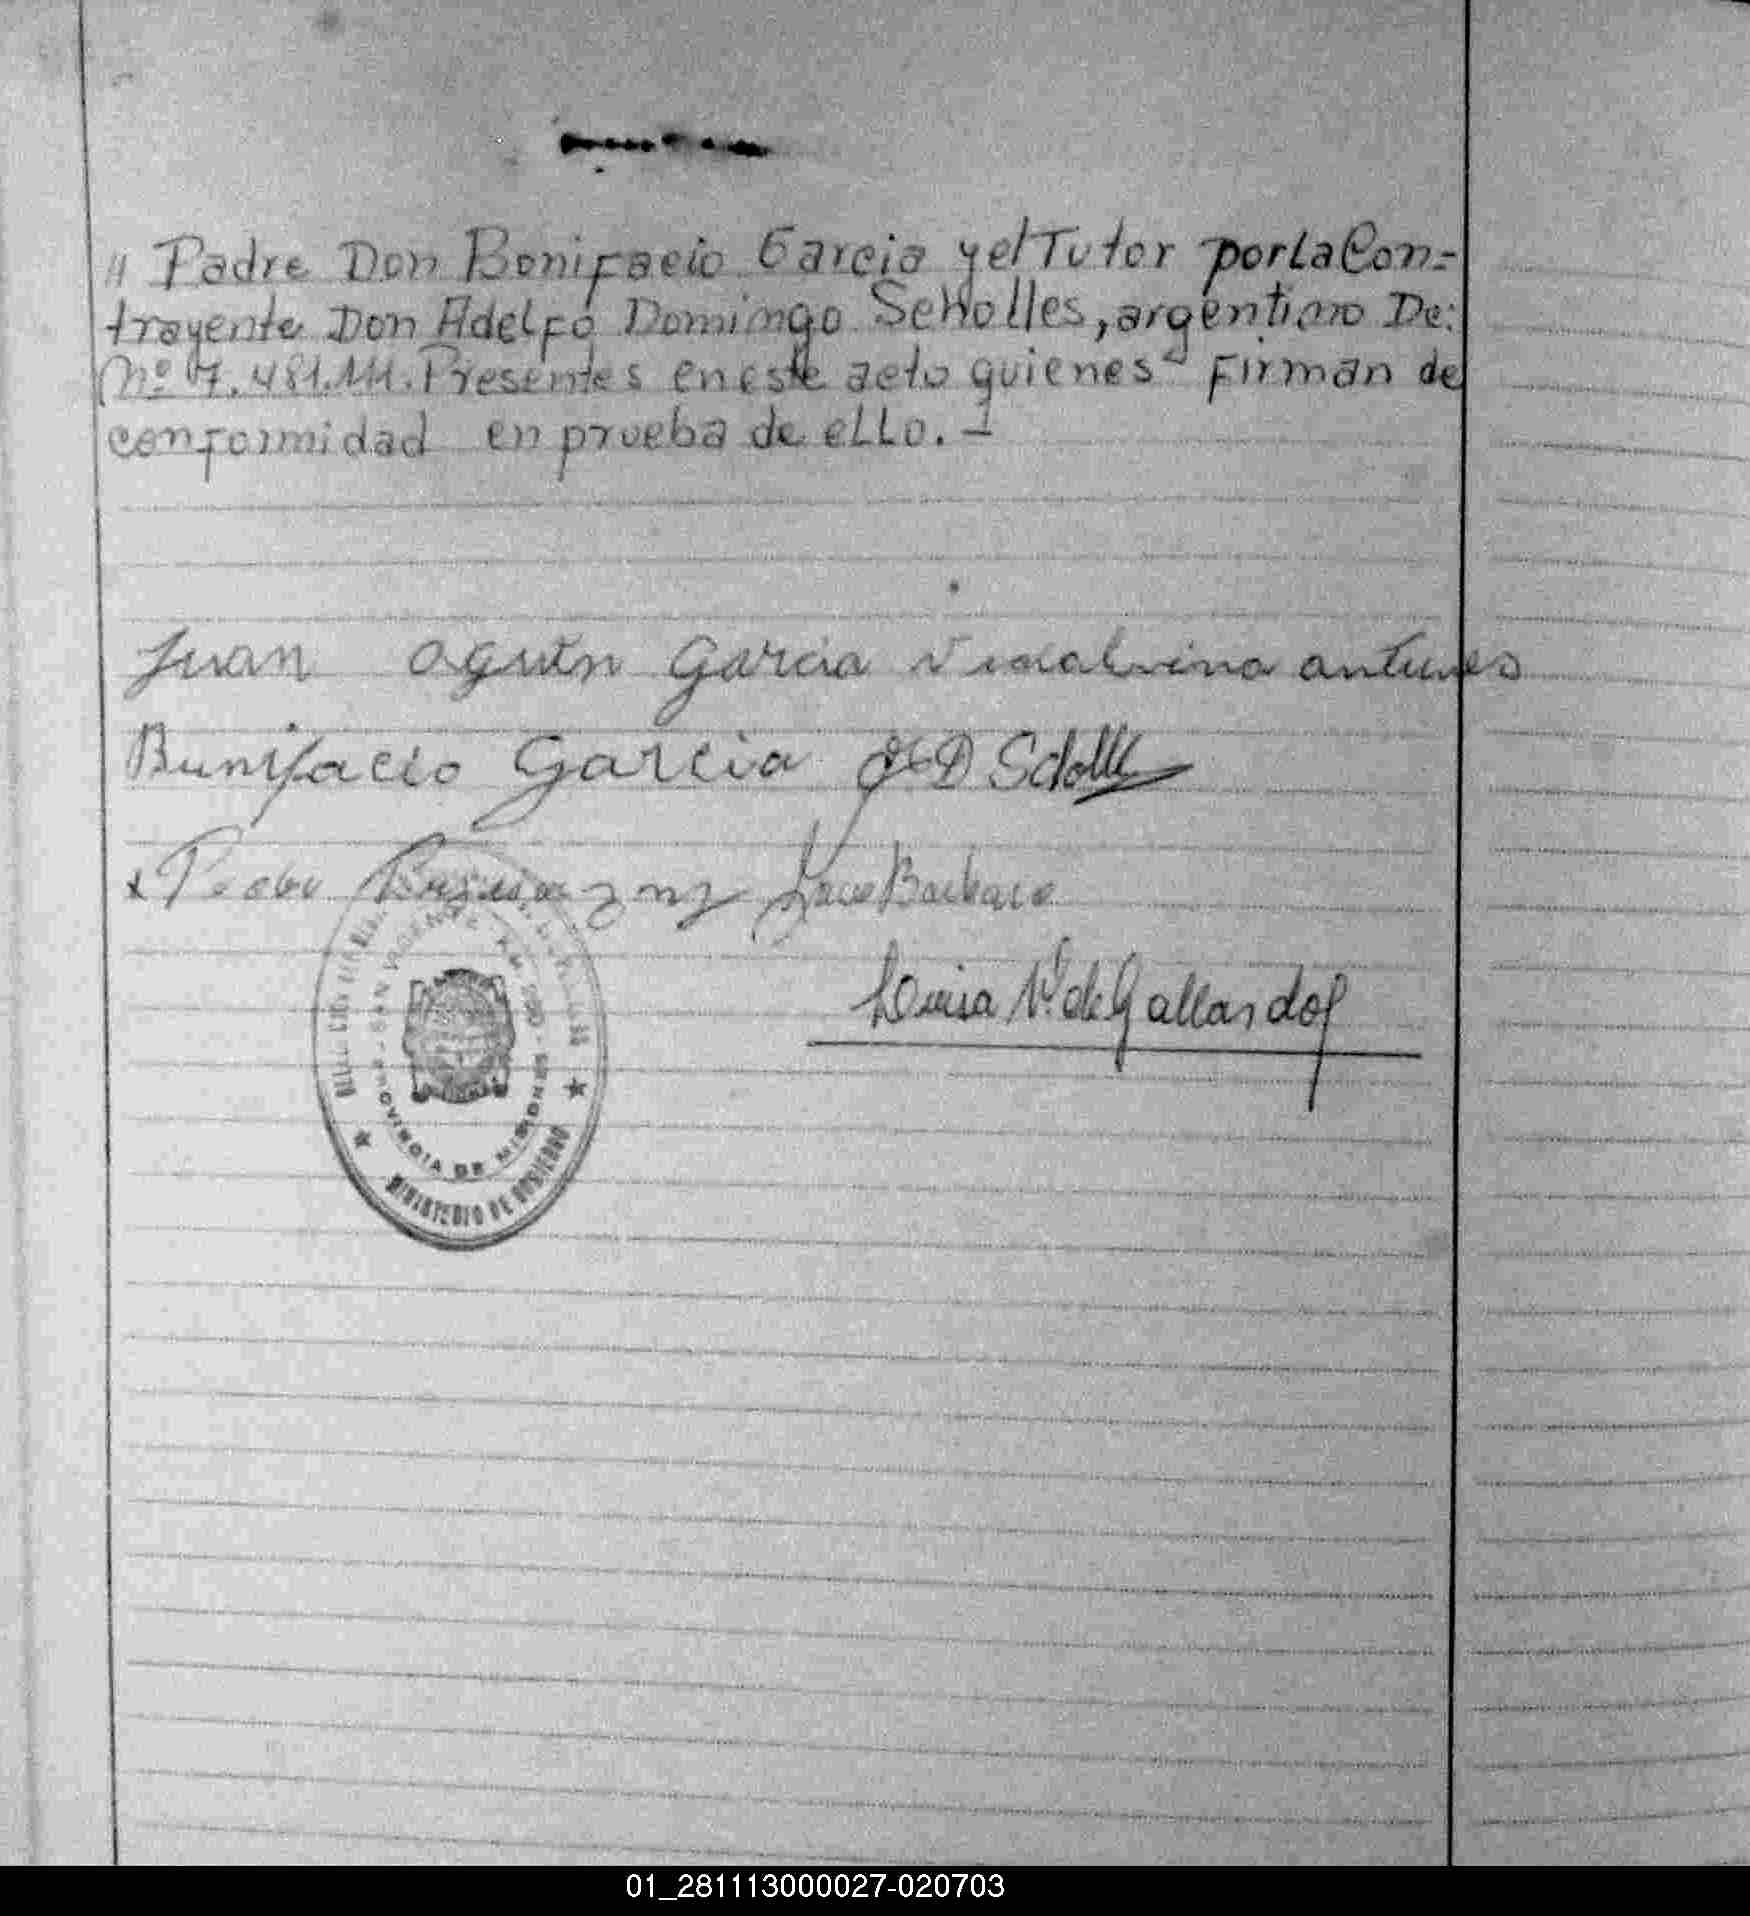 " Padre Don Bonifacio Garcia y el Tutor por la Con=
trayente Don Adelfo Domingo Scholles, argentino De:
Nº 7.481.111. Presentes en este acto quienes Firman de
conformidad en prueba de ello. -
Juan Agustin Garcia Vidalvina antunes
Bunifacio Garcia D Scholle
Pedro
Luisa V. de Gallardo
SAN VICENTE
PROVINCIA DE MISIONES
MINISTERIO DE GOBIERNO
01_281113000027-020703